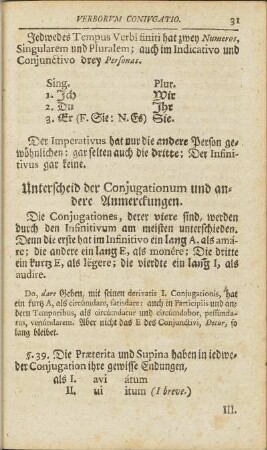 VERBORVM CONIVGATIO. 31
Jedwedes Tempus Verbi finiti hat zwey Numeros,
Singularem und Pluralem; auch im Indicativo und
Conjunctivo drey Personas.
Sing. Plur.
1. Ich Wir
2. Du Ihr
3. Er (F. Sie: N. Es) Sie.
Der Imperativus hat nur die andere Person ge-
wöhnlichen: gar selten auch die dritte: Der Infini-
tivus gar keine.
Unterscheid der Conjugationum und an-
dere Anmerckungen.
Die Conjugationes, derer viere sind, werden
durch den Infinitivum am meisten unterschieden.
Denn die erste hat im Infinitivo ein lang A. als amá-
re; die andere ein lang E, als monére; Die dritte
ein kurtz E, als légere; die vierdte ein lang I, als
audire.
Do, dare Geben, mit seinen derivatis I. Conjugationis, hat
ein kurtz A, als circúmdare, satísdare: auch in Participiis und an-
dern Temporibus, als circúmdatur und circúmdabor, pessúnda-
tus, venúndarem. Aber nicht das E des Conjunctivi, Detur, so
lang bleibet.
§. 39. Die Præterita und Supina haben in iedwe-
der Conjugation ihre gewisse Endungen,
als I. avi átum
II. ui ĭtum (I breve.)
III.